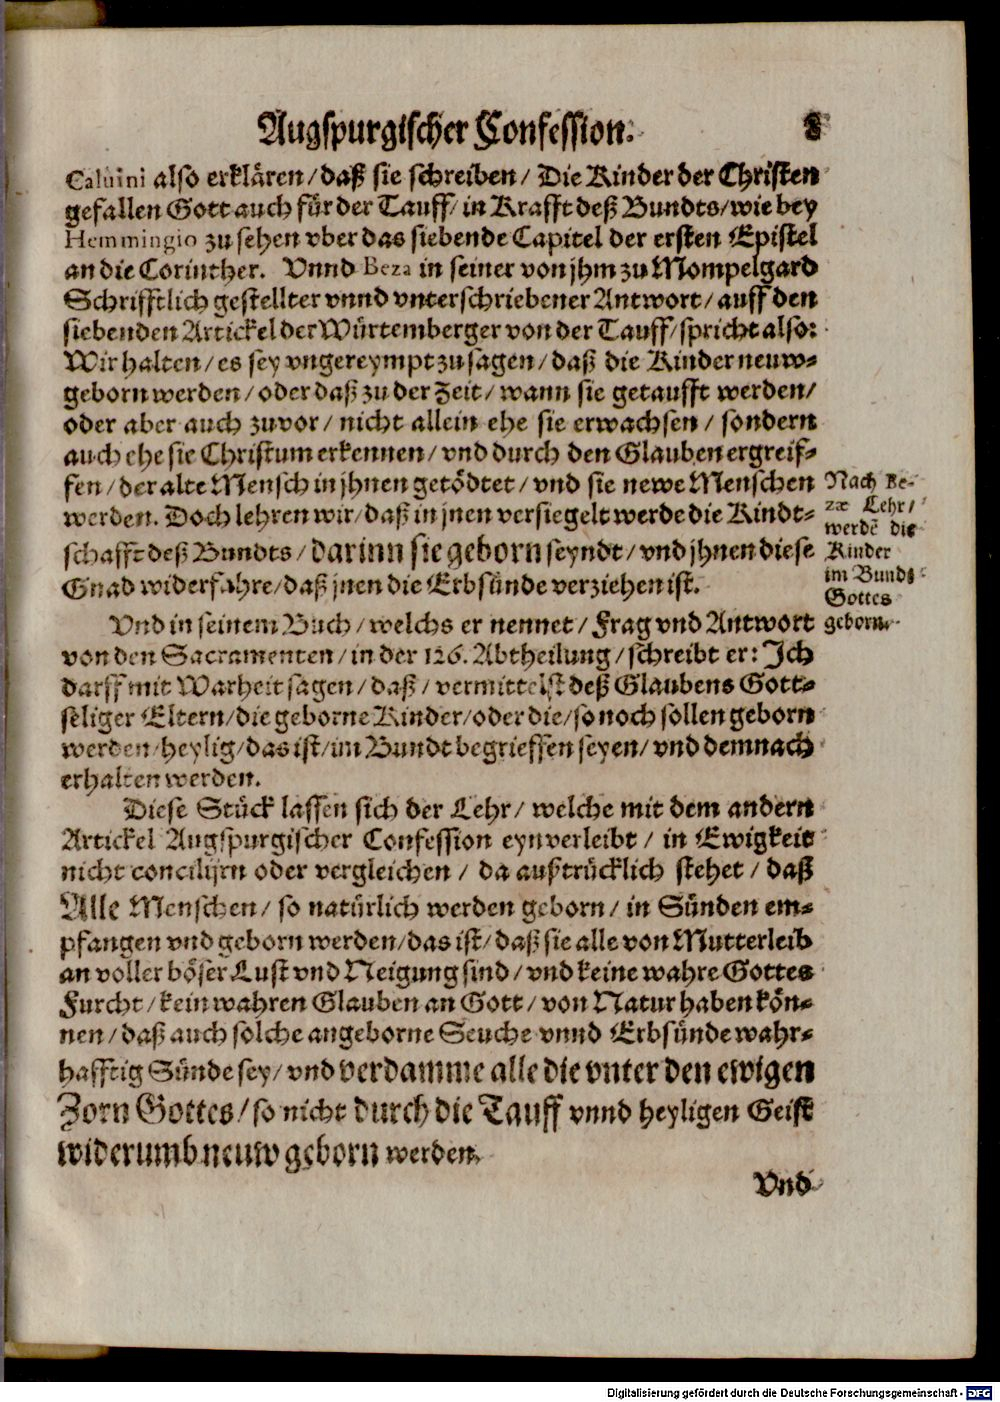 Augspurgischer Confession. 8
Caluini also erklären/ daß sie schreiben/ Die Kinder der Christen
gefallen Gott auch für der Tauff/ in Krafft deß Bundts/ wie bey
Hemmingio zu sehen vber das siebende Capitel der ersten Epistel
an die Corinther. Vnnd Beza in seiner von jhm zu Mompelgard
Schrifftlich gestellter vnnd vnterschriebener Antwort/ auff den
siebenden Artickel der Würtemberger von der Tauff/ spricht also:
Wir halten/ es sey vngereympt zu sagen/ daß die Kinder neuw-
geborn werden/ oder daß zu der Zeit/ wann sie getaufft werden/
oder aber auch zuvor/ nicht allein ehe sie erwachsen/ sondern
auch ehe sie Christum erkennen/ vnd durch den Glauben ergreif-
fen/ der alte Mensch in jhnen getödtet/ vnd sie newe Menschen
werden. Doch lehren wir/ daß in jnen versiegelt werde die Kindt-
schafft deß Bundts/ darinn sie geborn seyndt/ vnd jhnen diese
Gnad widerfahre/ daß jnen die Erbsünde verziehen ist.
Nach Be-
zæ Lehr/
werdē die
Kinder
im Bund
Gottes
geborn.
Vnd in seinem Buch/ welchs er nennet/ Frag vnd Antwort
von den Sacramenten/ in der 126. Abtheilung/ schreibt er: Ich
darff mit Warheit sagen/ daß/ vermittelst deß Glaubens Gott-
seliger Eltern/ die geborne Kinder/ oder die/ so noch sollen geborn
werden/ heylig/ das ist/ im Bundt begrieffen seyen/ vnd demnach
erhalten werden.
Diese Stück lassen sich der Lehr/ welche mit dem andern
Artickel Augspurgischer Confession eynverleibt/ in Ewigkeit
nicht concilijrn oder vergleichen/ da außtrücklich stehet/ daß
Alle Menschen/ so natürlich werden geborn/ in Sünden em-
pfangen vnd geborn werden/ das ist/ daß sie alle von Mutterleib
an voller böser Lust vnd Neigung sind/ vnd keine wahre Gottes
Furcht/ kein wahren Glauben an Gott/ von Natur haben kön-
nen/ daß auch solche angeborne Seuche vnnd Erbsünde wahr-
hafftig Sünde sey/ vnd verdamme alle die vnter den ewigen
Zorn Gottes/ so nicht durch die Tauff vnnd heyligen Geist
widerumb neuw geborn werden.
Vnd
Digitalisierung gefördert durch die Deutsche Forschungsgemeinschaft - DFG